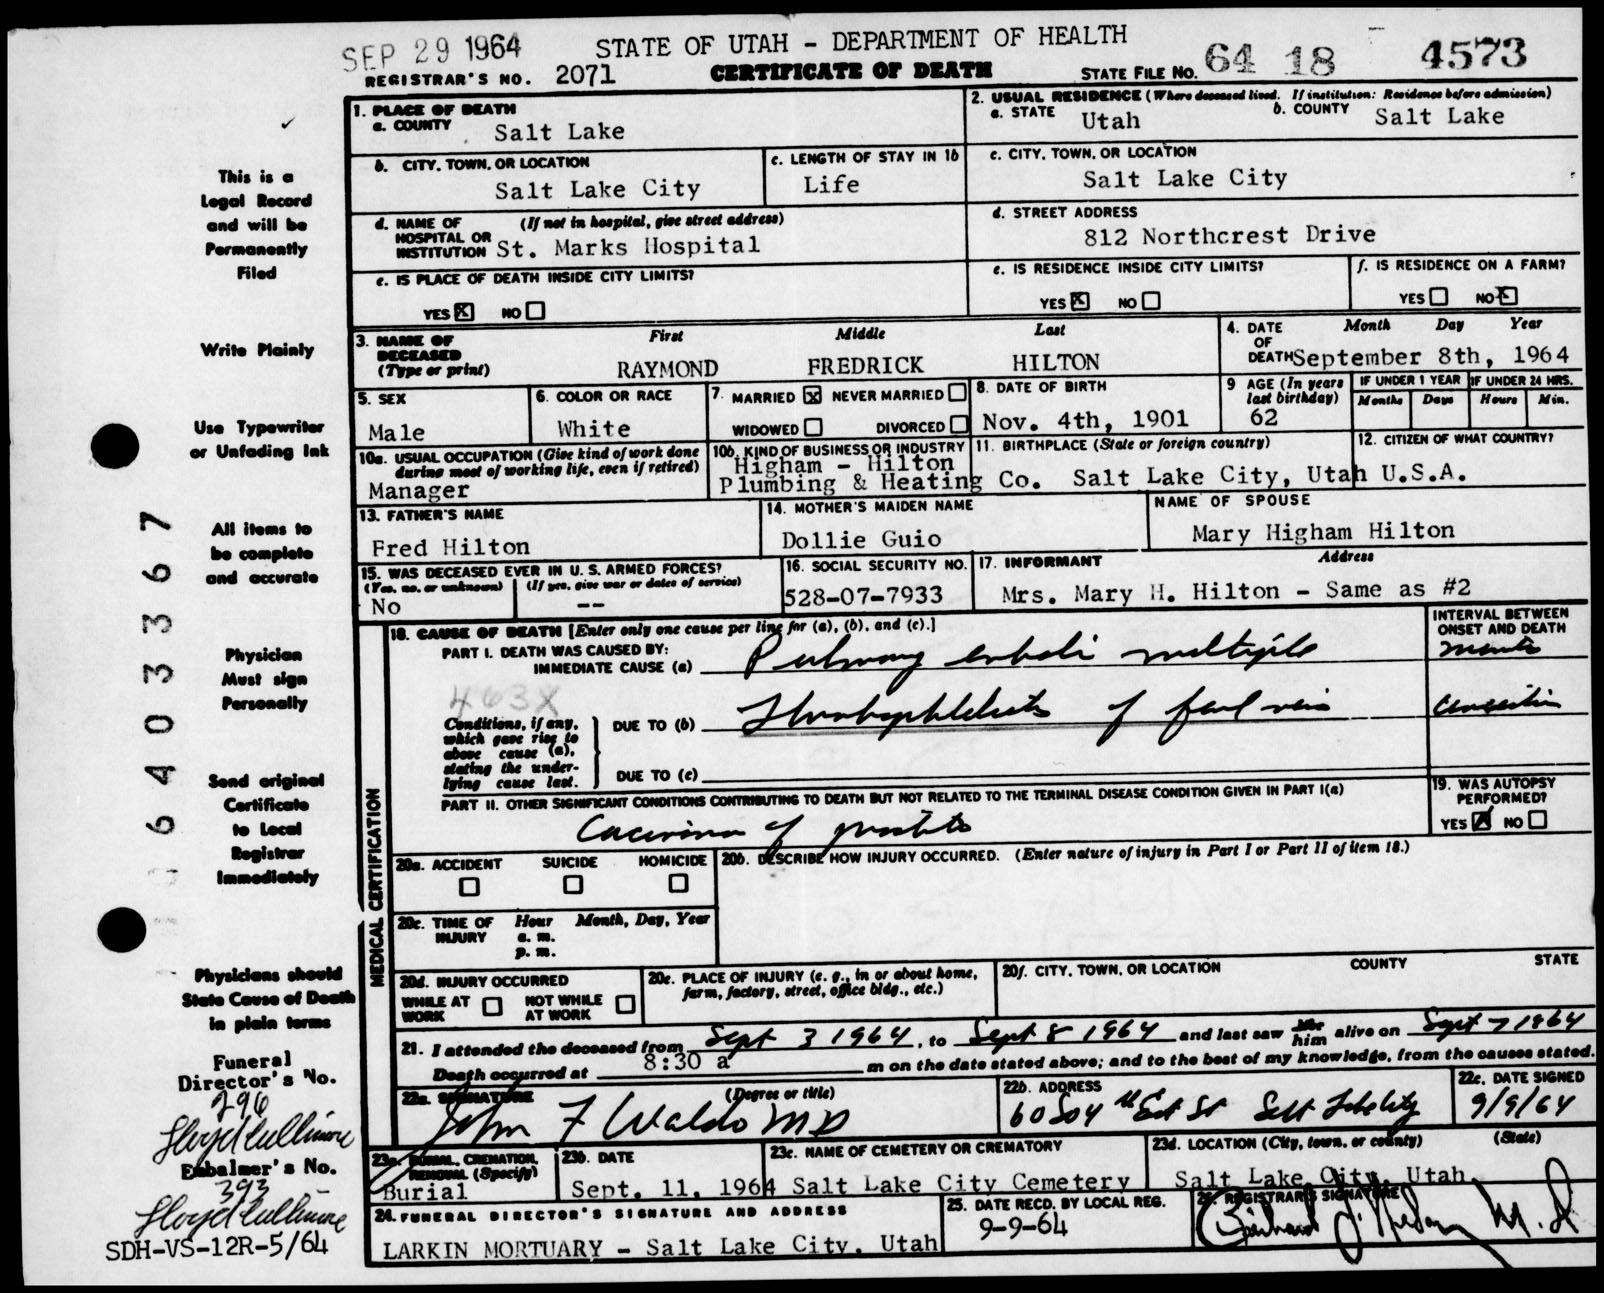 SEP 29 1964
STATE OF UTAH - DEPARTMENT OF HEALTH
REGISTRAR'S NO. 2071
CERTIFICATE OF DEATH
STATE FILE NO. 64 18 4573
This is a
Legal Record
and will be
Permanently
Filed
Write Plainly
Use Typewriter
or Unfading Ink
All items to
be complete
and accurate
Physician
Must sign
Personally
Send original
Certificate
to Local
Registrar
Immediately
Physicians should
State Cause of Death
in plain terms
Funeral
Director's No.
296
Embalmer's No.
393
SDH-VS-12R-5/64
64033367
1. PLACE OF DEATH
a. COUNTY Salt Lake
2. USUAL RESIDENCE (Where deceased lived. If institution: Residence before admission)
a. STATE Utah b. COUNTY Salt Lake
b. CITY, TOWN, OR LOCATION
Salt Lake City
c. LENGTH OF STAY IN 1b
Life
c. CITY, TOWN, OR LOCATION
Salt Lake City
d. NAME OF (If not in hospital, give street address)
HOSPITAL OR
INSTITUTION St. Marks Hospital
d. STREET ADDRESS
812 Northcrest Drive
e. IS PLACE OF DEATH INSIDE CITY LIMITS?
YES X NO
e. IS RESIDENCE INSIDE CITY LIMITS?
YES X NO
f. IS RESIDENCE ON A FARM?
YES NO X
3. NAME OF
DECEASED
(Type or print)
First Middle Last
RAYMOND FREDRICK HILTON
4. DATE
OF
DEATH
Month Day Year
September 8th, 1964
5. SEX
Male
6. COLOR OR RACE
White
7. MARRIED X NEVER MARRIED
WIDOWED DIVORCED
8. DATE OF BIRTH
Nov. 4th, 1901
9 AGE (In years
last birthday)
62
IF UNDER 1 YEAR
Months Days
IF UNDER 24 HRS.
Hours Min.
10a. USUAL OCCUPATION (Give kind of work done
during most of working life, even if retired)
Manager
10b. KIND OF BUSINESS OR INDUSTRY
Higham - Hilton
Plumbing & Heating Co.
11. BIRTHPLACE (State or foreign country)
Salt Lake City, Utah
12. CITIZEN OF WHAT COUNTRY?
U.S.A.
13. FATHER'S NAME
Fred Hilton
14. MOTHER'S MAIDEN NAME
Dollie Guio
NAME OF SPOUSE
Mary Higham Hilton
15. WAS DECEASED EVER IN U. S. ARMED FORCES?
(Yes, no, or unknown) (If yes, give war or dates of service)
No --
16. SOCIAL SECURITY NO.
528-07-7933
17. INFORMANT Address
Mrs. Mary H. Hilton - Same as #2
MEDICAL CERTIFICATION
18. CAUSE OF DEATH [Enter only one cause per line for (a), (b), and (c).]
INTERVAL BETWEEN
ONSET AND DEATH
PART I. DEATH WAS CAUSED BY:
IMMEDIATE CAUSE (a) Pulmonary emboli multiple
463X
Conditions, if any,
which gave rise to
above cause (a),
stating the under-
lying cause last.
DUE TO (b) Thrombophlebitis of femoral vein
DUE TO (c)
PART II. OTHER SIGNIFICANT CONDITIONS CONTRIBUTING TO DEATH BUT NOT RELATED TO THE TERMINAL DISEASE CONDITION GIVEN IN PART I(a)
Carcinoma of prostate
19. WAS AUTOPSY
PERFORMED?
YES X NO
20a. ACCIDENT SUICIDE HOMICIDE
20b. DESCRIBE HOW INJURY OCCURRED. (Enter nature of injury in Part I or Part II of item 18.)
20c. TIME OF
INJURY
Hour Month, Day, Year
a. m.
p. m.
20d. INJURY OCCURRED
WHILE AT
WORK
NOT WHILE
AT WORK
20e. PLACE OF INJURY (e. g., in or about home,
farm, factory, street, office bldg., etc.)
20f. CITY, TOWN, OR LOCATION COUNTY STATE
21. I attended the deceased from Sept 3 1964, to Sept 8 1964 and last saw her him alive on Sept 7 1964
Death occurred at 8:30 a m on the date stated above; and to the best of my knowledge, from the causes stated.
22a. SIGNATURE (Degree or title)
John F Waldo MD
22b. ADDRESS
22c. DATE SIGNED
9/9/64
23a. BURIAL, CREMATION,
REMOVAL (Specify)
Burial
23b. DATE
Sept. 11, 1964
23c. NAME OF CEMETERY OR CREMATORY
Salt Lake City Cemetery
23d. LOCATION (City, town, or county) (State)
Salt Lake City, Utah
24. FUNERAL DIRECTOR'S SIGNATURE AND ADDRESS
LARKIN MORTUARY - Salt Lake City, Utah
25. DATE RECD. BY LOCAL REG.
9-9-64
26. REGISTRAR'S SIGNATURE
M.D